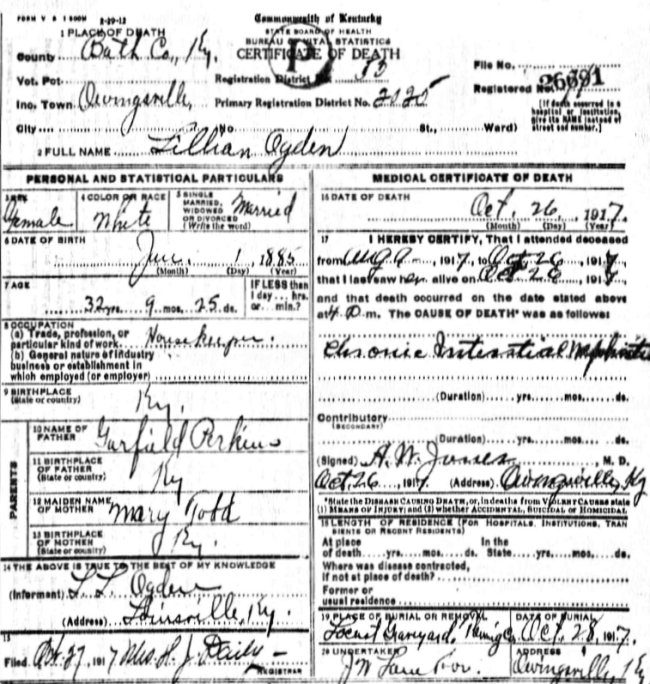 FORM V S 1 500M 2-29-12
Commonwealth of Kentucky
STATE BOARD OF HEALTH
BUREAU OF VITAL STATISTICS
CERTIFICATE OF DEATH
1 PLACE OF DEATH
County Bath Co., Ky.
Vot. Pct.
Registration District No. 
File No. 26691
Inc. Town Owingsville,
Primary Registration District No. 2025
Registered No.
City No St., Ward)
[If death occurred in a hospital or institution, give its NAME instead of street and number.]
2 FULL NAME Lillian Ogden
PERSONAL AND STATISTICAL PARTICULARS
3 SEX Female
4 COLOR OR RACE White
5 SINGLE MARRIED, WIDOWED OR DIVORCED (Write the word) Married
6 DATE OF BIRTH 1, 1885
(Month) (Day) (Year)
7 AGE
32 yrs. 9 mos. 25 ds.
IF LESS than 1 day... hrs. or... min.?
8 OCCUPATION
(a) Trade, profession, or particular kind of work Housekeeper.
(b) General nature of industry business or establishment in which employed (or employer)
9 BIRTHPLACE (State or country) Ky.
PARENTS
10 NAME OF FATHER Garfield Perkins
11 BIRTHPLACE OF FATHER (State or country) Ky
12 MAIDEN NAME OF MOTHER Mary Todd
13 BIRTHPLACE OF MOTHER (State or country) Ky.
14 THE ABOVE IS TRUE TO THE BEST OF MY KNOWLEDGE
(Informant) Ogden
(Address) Ky.
15
Filed Oct. 27, 1917 Mrs. H. J. Daily
REGISTRAR
MEDICAL CERTIFICATE OF DEATH
16 DATE OF DEATH
Oct. 26, 1917.
(Month) (Day) (Year)
17 I HEREBY CERTIFY, That I attended deceased
from Aug , 1917, to Oct 26, 1917
that I last saw her alive on Oct , 191
and that death occurred on the date stated above
at m. The CAUSE OF DEATH* was as follows:
Chronic Interstial Nephritis
(Duration) yrs. mos. ds.
Contributory
(SECONDARY)
(Duration) yrs. mos. ds.
(Signed) A. W. , M. D.
Oct. 26, 1917. (Address) Owingsville, Ky
*State the DISEASE CAUSING DEATH, or, in deaths from VIOLENT CAUSES state
(1) MEANS OF INJURY; and (2) whether ACCIDENTAL, SUICIDAL or HOMICIDAL
18 LENGTH OF RESIDENCE (FOR HOSPITALS, INSTITUTIONS, TRANSIENTS OR RECENT RESIDENTS)
At place of death yrs. mos. ds. In the State yrs. mos. ds.
Where was disease contracted,
if not at place of death?
Former or
usual residence
19 PLACE OF BURIAL OR REMOVAL
Locust Graveyard,
DATE OF BURIAL
Oct. 28, 1917.
20 UNDERTAKER
J W Lane
ADDRESS
Owingsville, Ky